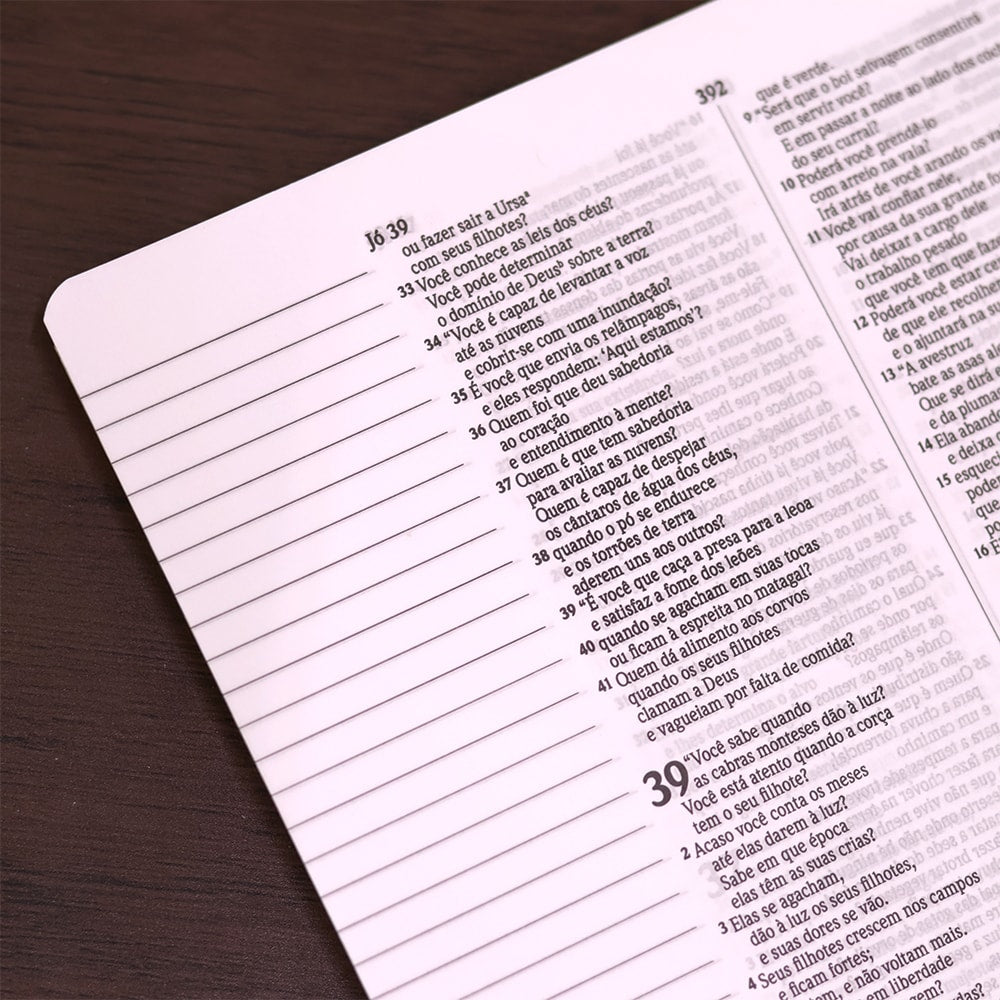 Jó 39
392
ou fazer sair a Ursaª
com seus filhotes?
33 Você conhece as leis dos céus?
Você pode determinar
o domínio de Deusᵇ sobre a terra?
34 “Você é capaz de levantar a voz
até as nuvens
e cobrir-se com uma inundação?
35 É você que envia os relâmpagos,
e eles respondem: ‘Aqui estamos’?
36 Quem foi que deu sabedoria
ao coração
e entendimento à mente?
37 Quem é que tem sabedoria
para avaliar as nuvens?
Quem é capaz de despejar
os cântaros de água dos céus,
38 quando o pó se endurece
e os torrões de terra
aderem uns aos outros?
39 “É você que caça a presa para a leoa
e satisfaz a fome dos leões
40 quando se agacham em suas tocas
ou ficam à espreita no matagal?
41 Quem dá alimento aos corvos
quando os seus filhotes
clamam a Deus
e vagueiam por falta de comida?
39 “Você sabe quando
as cabras monteses dão à luz?
Você está atento quando a corça
tem o seu filhote?
2 Acaso você conta os meses
até elas darem à luz?
Sabe em que época
elas têm as suas crias?
3 Elas se agacham,
dão à luz os seus filhotes,
e suas dores se vão.
4 Seus filhotes crescem nos campos
e ficam fortes;
e não voltam mais.
em liberdade
que é verde.
9 “Será que o boi selvagem consentirá
em servir você?
E em passar a noite ao lado dos
do seu curral?
10 Poderá você prendê-lo
com arreio na vala?
Irá atrás de você arando os
11 Você vai confiar nele,
por causa da sua grande
Vai deixar a cargo dele
o trabalho pesado
que você tem que
12 Poderá você estar
de que ele
e o ajuntará na
13 “A avestruz
bate as asas
Que se dirá
e da
14 Ela
e deixa
15
que
16